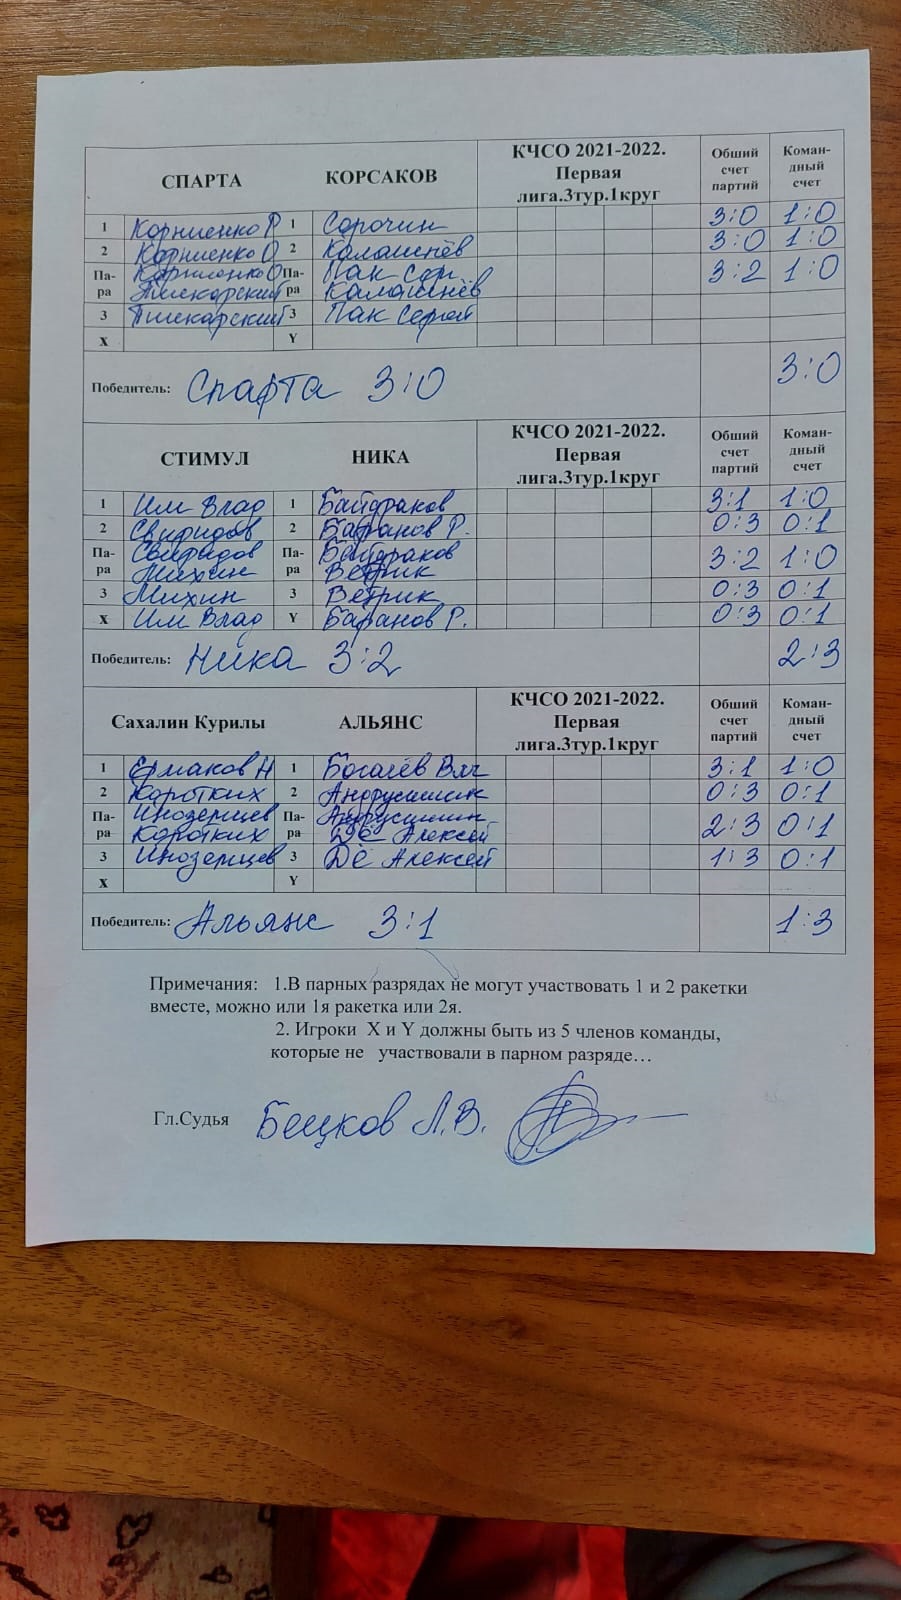 СПАРТА КОРСАКОВ КЧСО 2021-2022. Первая лига.3тур.1круг Обший счет партий Коман-дный счет
1 Корниенко Р 1 Сорочин 3:0 1:0
2 Корниенко О 2 Калашнёв 3:0 1:0
Па- Корниенко О Па- Пак Сер. 3:2 1:0
ра Пискарский ра Калашнёв
3 Пискарский 3 Пак Сергей
X Y
Победитель: Спарта 3:0 3:0
СТИМУЛ НИКА КЧСО 2021-2022. Первая лига.3тур.1круг Обший счет партий Коман-дный счет
1 Им Влад 1 Байдраков 3:1 1:0
2 Свиридов 2 Баранов Р. 0:3 0:1
Па- Свиридов Па- Байдраков 3:2 1:0
ра Михин ра Ветрик
3 Михин 3 Ветрик 0:3 0:1
X Им Влад Y Баранов Р. 0:3 0:1
Победитель: Ника 3:2 2:3
Сахалин Курилы АЛЬЯНС КЧСО 2021-2022. Первая лига.3тур.1круг Обший счет партий Коман-дный счет
1 Ермаков Н 1 Богачёв Вяч 3:1 1:0
2 Коротких 2 Андрусишин 0:3 0:1
Па- Иноземцев Па- Андрусишин 2:3 0:1
ра Коротких ра Дё Алексей
3 Иноземцев 3 Дё Алексей 1:3 0:1
X Y
Победитель: Альянс 3:1 1:3
Примечания: 1.В парных разрядах не могут участвовать 1 и 2 ракетки
вместе, можно или 1я ракетка или 2я.
2. Игроки X и Y должны быть из 5 членов команды,
которые не участвовали в парном разряде…
Гл.Судья Бецков Л.В.